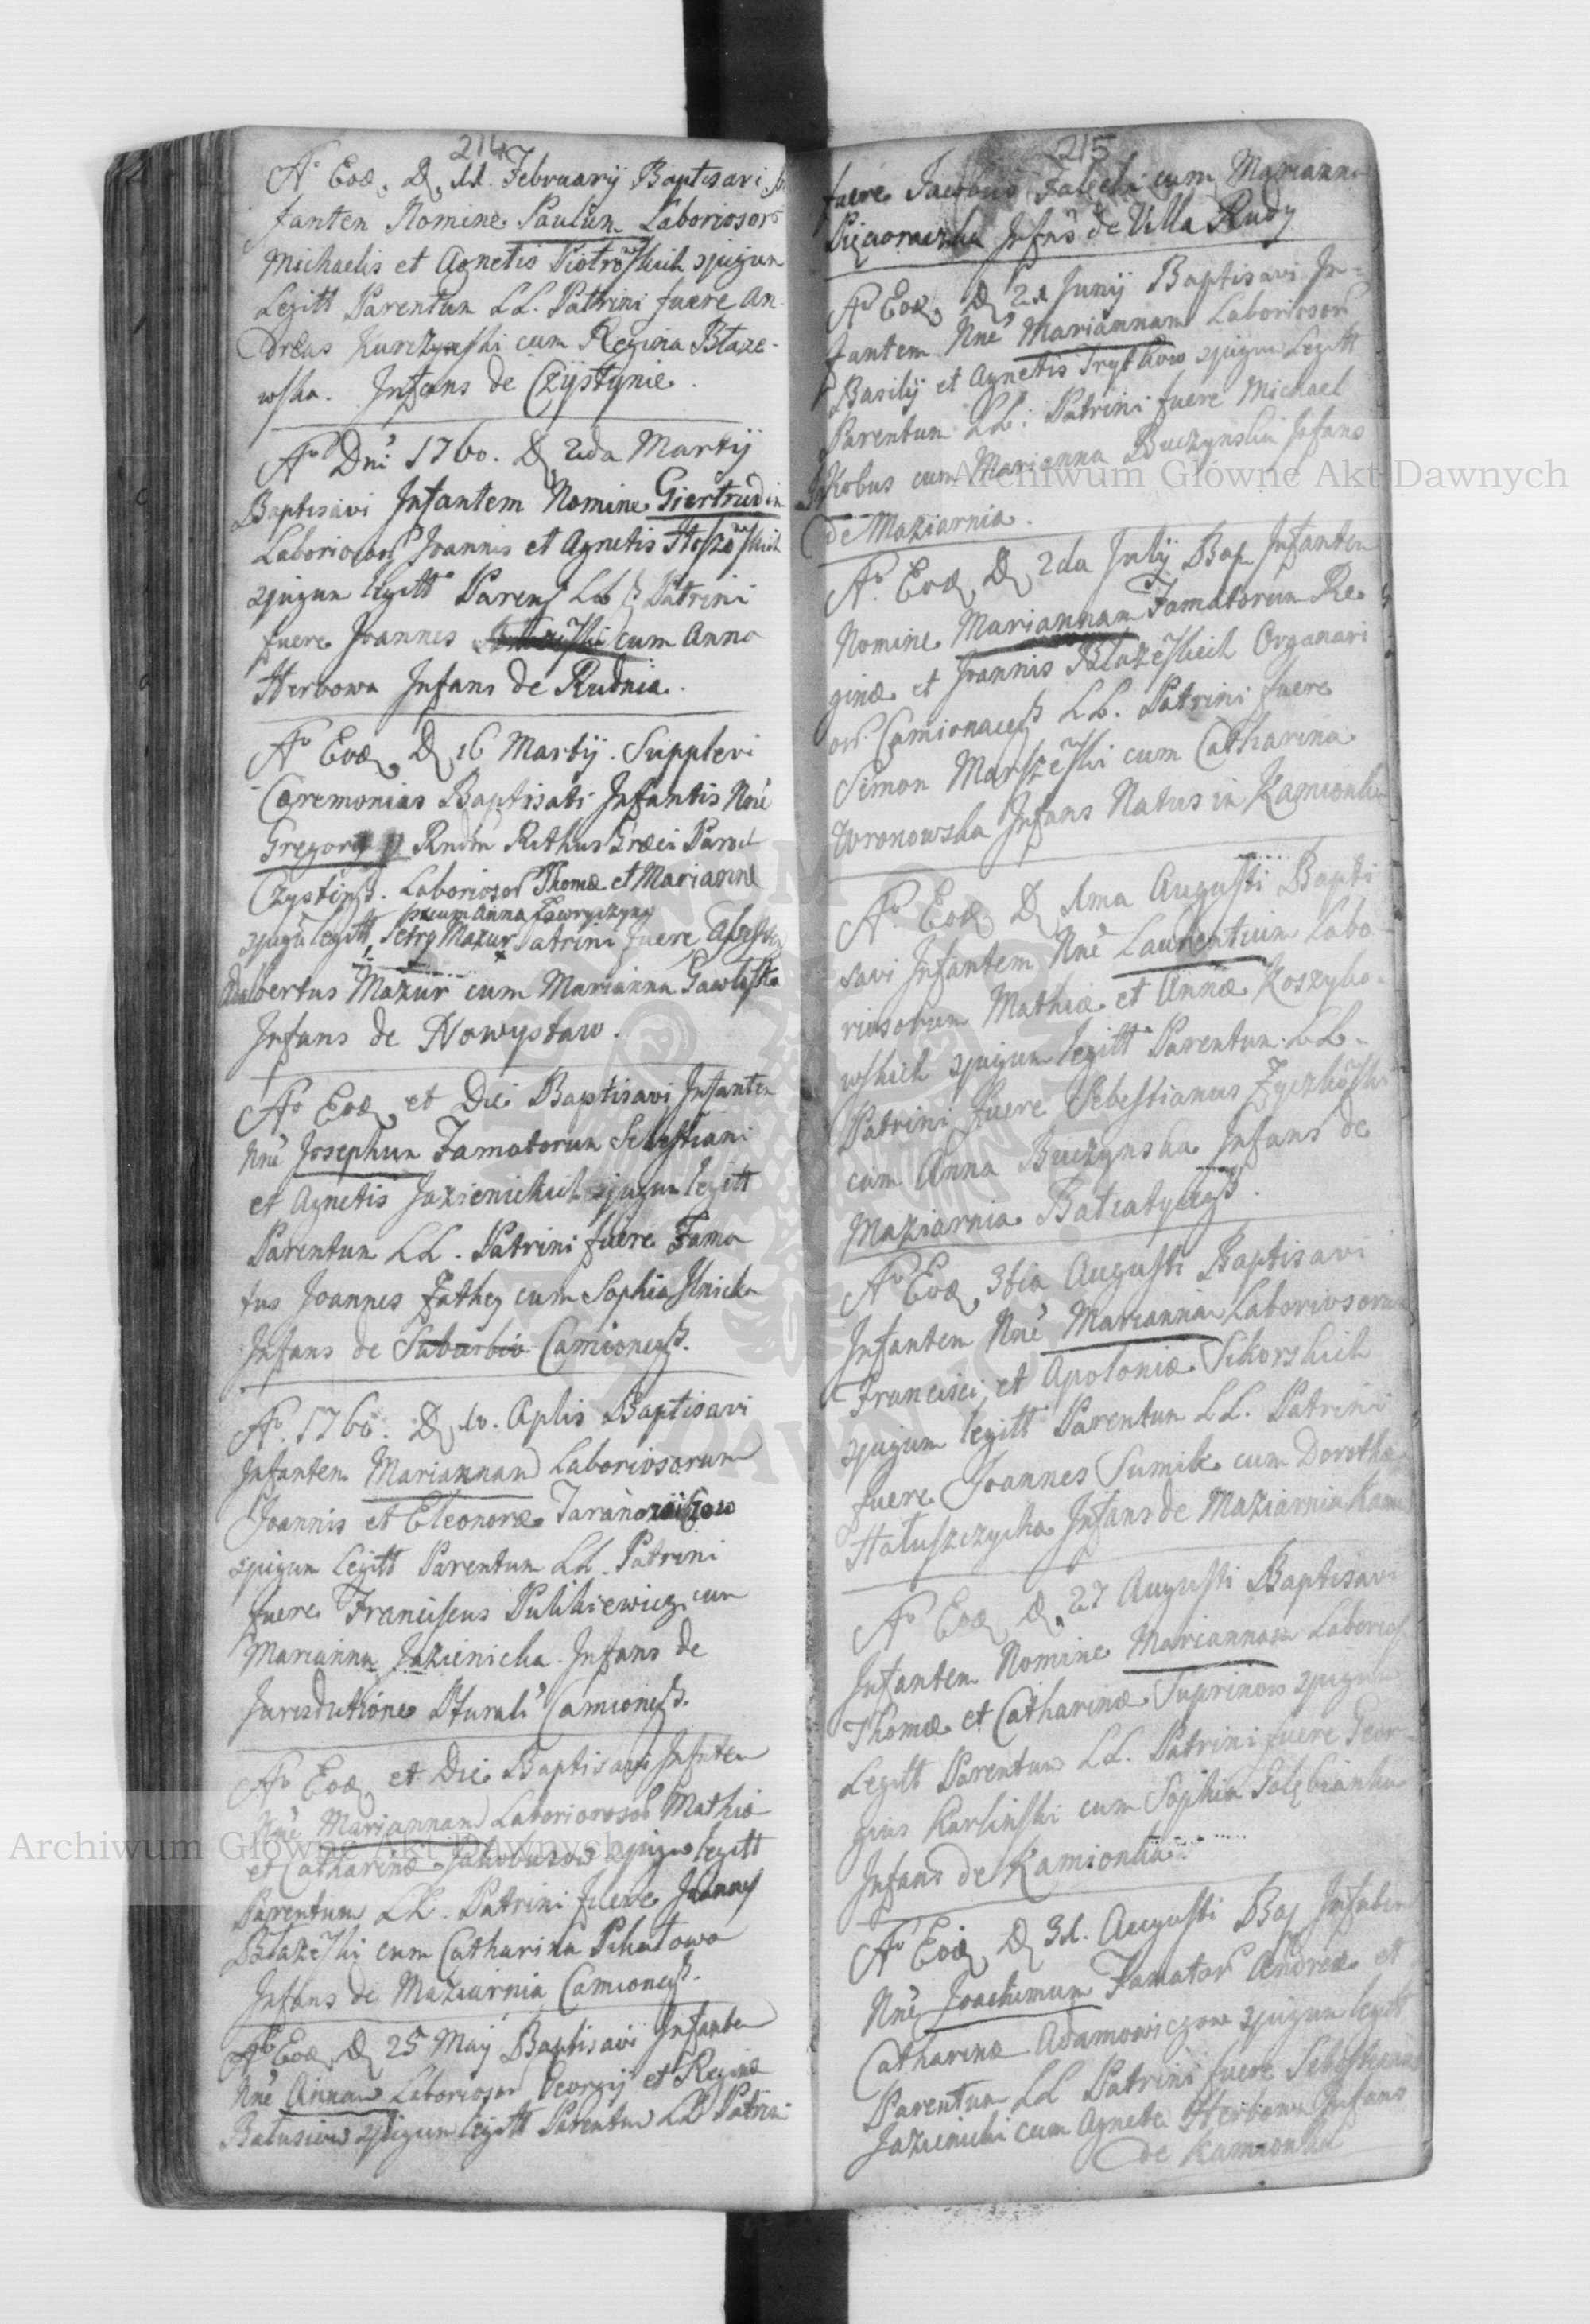 214
Aº Eod. D. 11. Februarij Baptisavi In
fantem Nomine Paulum Laboriosor
Michaelis et Agnetis Piotrowskich cjugum
Legitt Parentum LL. Patrini fuere An
dreas Kurczynski cum Regina Błaze-
wska. Infans de Czystynie.
Aº Dni 1760. D. 2da Martij
Baptisavi Infantem Nomine Giertrudim
Laboriosor Joannis et Agnetis
cjugum legitt Parent LL Patrini
fuere Joannes cum Anna
Herbowa Infans de Rudnia.
Aº Eod. D. 16 Martij. Supplevi
Cæremonias Baptisati Infantis Nne
Gregorij p Rndm Rithus Græci Paroch
Czystins. Laborioso Thomæ et Marianne
cum Anna
cjugu legitt Petro Mazur Patrini fuere
Adalbertus Mazur cum Marianna
Infans de Nowystaw.
Aº Eod. et Die Baptisavi Infantem
Nne Josephum Famatorum Sebestiani
et Agnetis Jazienickich cjugum legitt
Parentum LL. Patrini fuere Fama
tus Joannes Fathey cum Sophia Ilnicka
Infans de Suburbio Camionens.
Aº. 1760. D. 10. Aplis Baptisavi
Infantem Mariannam Laboriosorum
Joannis et Eleonoræ
cjugum legitt Parentum LL. Patrini
fuere Franciscus Pulikiewicz cum
Marianna Jazienicka. Infans de
Jurisdictione Camionens.
Aº Eod. et Die Baptisavi Infantem
Nne Mariannam Laboriosor Mathiæ
et Catharinæ Jakobusow cjugu legitt
Parentum LL. Patrini fuere Joannes
Błazeski cum Catharina
Infans de Maziarnia Camionens.
Aº Eod. D. 25 Maij Baptisavi Infantem
Nne Annam Laboriosor Georgij et Reginæ
cjugum legitt Parentum LL Patrini
215
fuere Jacobus Falecki cum Marianna
Infans de Villa Rudy
Aº Eod. D. 21 Junij Baptisavi In-
fantem Nne Mariannam Laboriosor
Basilij et Agnetis Trytkow cjugum Legitt
Parentum LL. Patrini fuere Michael
Jakobus cum Marianna Buczynska Infans
de Maziarnia.
Aº. Eod. D. 2da Julij Bap Infantem
Nomine Mariannam Famatorum Re
ginæ et Joannis Błazeskich Organari
or. Camionacens LL. Patrini fuere
Simon Marszeski cum Catharina
Wronowska Infans Natus in Kamionka
Aº. Eod. D. 1ma Augusti Bapti
savi Infantem Nne Laurentium Labo
riosorum Mathiæ et Annæ Koszyko-
wskich cjugum legitt Parentum LL.
Patrini fuere Sebestianus Zyczkoski
cum Anna Buczynska Infans de
Maziarnia Batiatycens.
Aº Eod. 3tia Augusti Baptisavi
Infantem Nne Mariannam Laboriosorum
Francisci et Apoloniæ Sikorskich
cjugum legitt Parentum LL. Patrini
fuere Joannes Sumik cum Dorothea
Hałuszczycka Infans de Maziarnia Kame
Aº Eod. D. 27 Augusti Baptisavi
Infantem Nomine Mariannam Laborios
Thomæ et Catharinæ Suprinow cjugum
Legitt Parentum LL. Patrini fuere Geor-
gius Karlinski cum Sophia Golębianka
Infans de Kamionka.
Aº Eod. D. 31. Augusti Bap Infantem
Nne Joachimum Famator Andreæ et
Catharinæ Adamowiczow cjugum legitt
Parentum LL Patrini fuere Sebestianus
Jazienicki cum Agneta Herbowa Infans
de Kamionka
Archiwum Główne Akt Dawnych
Archiwum Główne Akt Dawnych